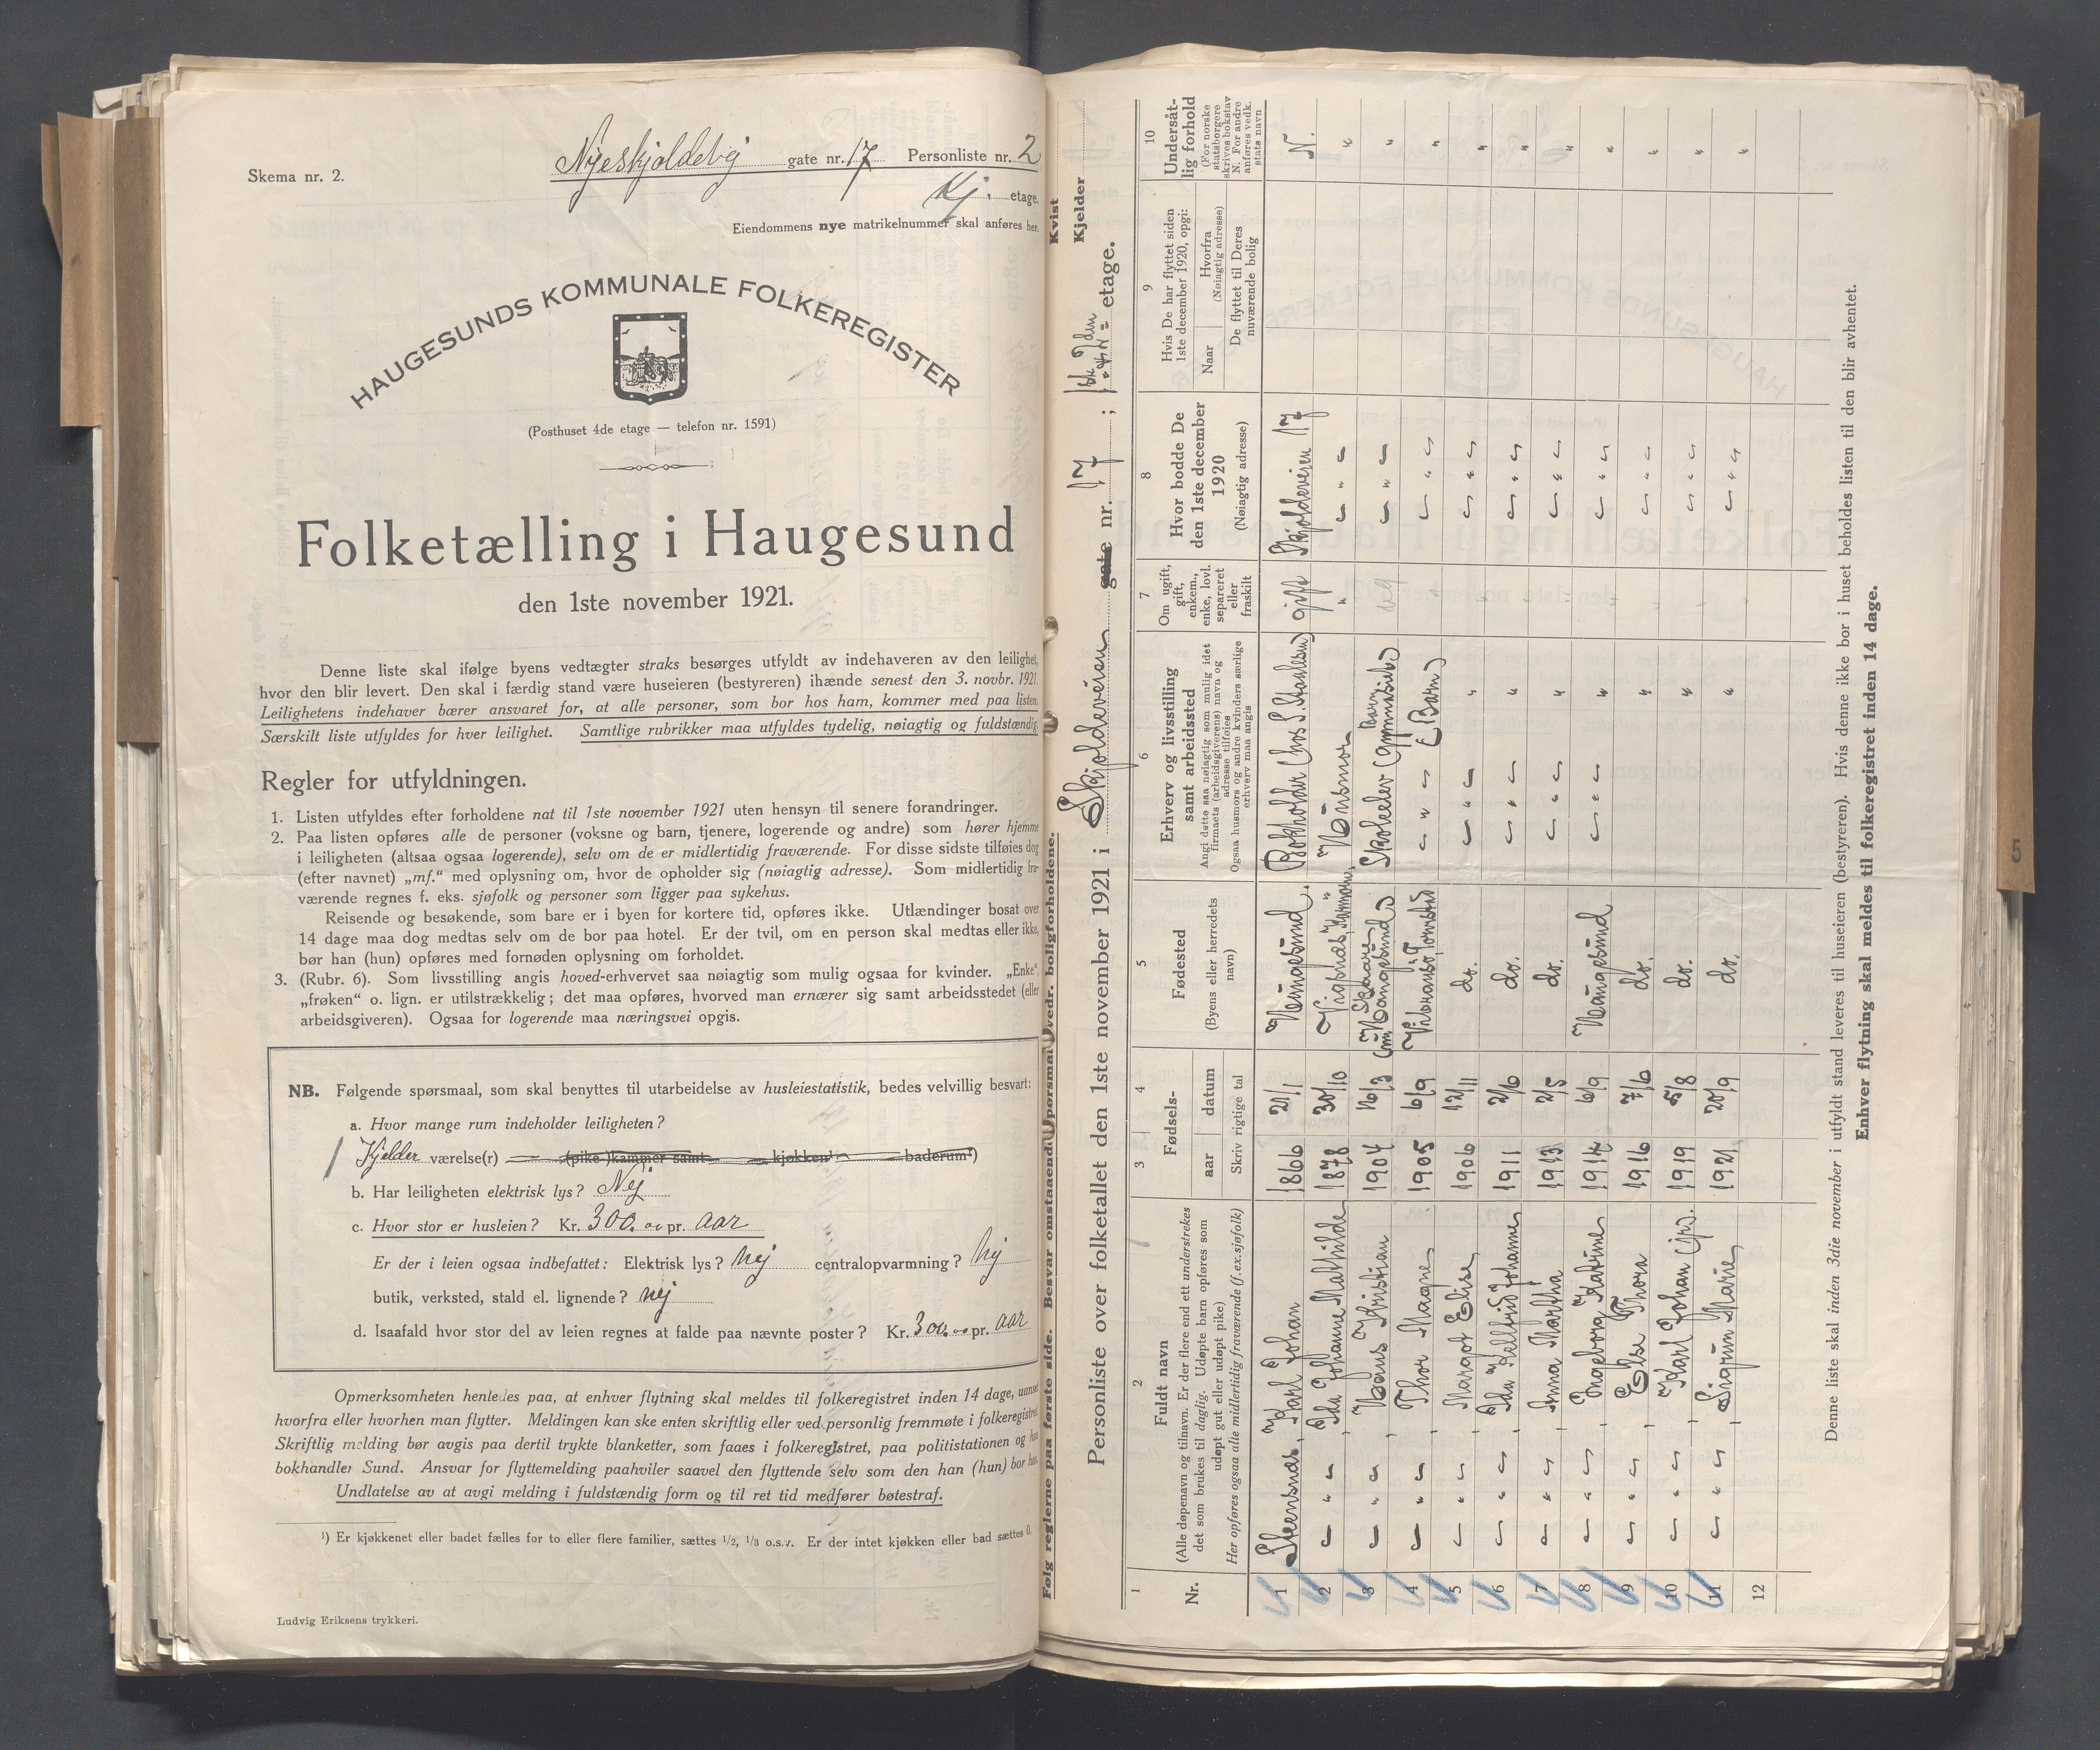 Skema nr. 2.
Nyeskjoldevej gate nr. 17 Personliste nr. 2
Kj. etage.
Eiendommens nye matrikelnummer skal anføres her.
HAUGESUNDS KOMMUNALE FOLKEREGISTER
(Posthuset 4de etage — telefon nr. 1591)
Folketælling i Haugesund
den 1ste november 1921.
Denne liste skal ifølge byens vedtægter straks besørges utfyldt av indehaveren av den leilighet,
hvor den blir levert. Den skal i færdig stand være huseieren (bestyreren) ihænde senest den 3. novbr. 1921.
Leilighetens indehaver bærer ansvaret for, at alle personer, som bor hos ham, kommer med paa listen.
Særskilt liste utfyldes for hver leilighet. Samtlige rubrikker maa utfyldes tydelig, nøiagtig og fuldstændig.
Regler for utfyldningen.
1. Listen utfyldes efter forholdene nat til 1ste november 1921 uten hensyn til senere forandringer.
2. Paa listen opføres alle de personer (voksne og barn, tjenere, logerende og andre) som hører hjemme
i leiligheten (altsaa ogsaa logerende), selv om de er midlertidig fraværende. For disse sidste tilføies dog
(efter navnet) „mf.“ med oplysning om, hvor de opholder sig (nøiagtig adresse). Som midlertidig fra-
værende regnes f. eks. sjøfolk og personer som ligger paa sykehus.
Reisende og besøkende, som bare er i byen for kortere tid, opføres ikke. Utlændinger bosat over
14 dage maa dog medtas selv om de bor paa hotel. Er der tvil, om en person skal medtas eller ikke,
bør han (hun) opføres med fornøden oplysning om forholdet.
3. (Rubr. 6). Som livsstilling angis hoved-erhvervet saa nøiagtig som mulig ogsaa for kvinder. „Enke“,
„frøken“ o. lign. er utilstrækkelig; det maa opføres, hvorved man ernærer sig samt arbeidsstedet (eller
arbeidsgiveren). Ogsaa for logerende maa næringsvei opgis.
NB. Følgende spørsmaal, som skal benyttes til utarbeidelse av husleiestatistik, bedes velvillig besvart:
a. Hvor mange rum indeholder leiligheten?
1 Kjelder værelse(r) (pike-)kammer samt kjøkken¹) baderum¹)
b. Har leiligheten elektrisk lys? Nej
c. Hvor stor er husleien? Kr. 300.00 pr. aar
Er der i leien ogsaa indbefattet: Elektrisk lys? nej centralopvarmning? nej
butik, verksted, stald el. lignende? nej
d. Isaafald hvor stor del av leien regnes at falde paa nævnte poster? Kr. 300.00 pr. aar
Opmerksomheten henledes paa, at enhver flytning skal meldes til folkeregistret inden 14 dage, uanset
hvorfra eller hvorhen man flytter. Meldingen kan ske enten skriftlig eller ved personlig fremmøte i folkeregistret.
Skriftlig melding bør avgis paa dertil trykte blanketter, som faaes i folkeregistret, paa politistationen og hos
bokhandler Sund. Ansvar for flyttemelding paahviler saavel den flyttende selv som den han (hun) bor hos.
Undlatelse av at avgi melding i fuldstændig form og til ret tid medfører bøtestraf.
¹) Er kjøkkenet eller badet fælles for to eller flere familier, sættes 1/2, 1/3 o.s.v. Er der intet kjøkken eller bad sættes 0.
Ludvig Eriksens trykkeri.
Følg reglerne paa første side. Besvar omstaaende spørsmaal vedr. boligforholdene.
Kvist
Kjelder
Personliste over folketallet den 1ste november 1921 i Skjoldeveien gate nr. 17 ; etage.
1 2 3 4 5 6 7 8 9 10
Nr.
Fuldt navn
(Alle døpenavn og tilnavn. Er der flere end ett understrekes
det som brukes til daglig. Udøpte barn opføres som
udøpt gut eller udøpt pike)
Her opføres ogsaa alle midlertidig fraværende (f.ex. sjøfolk)
Fødsels-
aar datum
Skriv rigtige tal
Fødested
(Byens eller herredets
navn)
Erhverv og livsstilling
samt arbeidssted
Angi dette saa nøiagtig som mulig idet
firmaets (arbeidsgiverens) navn og
adresse tilføies
Ogsaa husmors og andre kvinders særlige
erhverv maa angis
Om ugift,
gift,
enkem.,
enke, lovl.
separeret
eller
fraskilt
Hvor bodde De
den 1ste december
1920
(Nøiagtig adresse)
Hvis De har flyttet siden
1ste december 1920, opgi:
Naar
Hvorfra
(Nøiagtig adresse)
De flyttet til Deres
nuværende bolig
Undersåt-
lig forhold
(For norske
statsborgere
skrives bokstav
N. For andre
anføres vedk.
stats navn
1 Steensnæs, Karl Johan 1866 21/1 Haugesund. Bokholder (hos S. Stahlesen) gift Skjoldeveien 17 N.
2 — " — , Ida Johanne Mathilde 1878 30/10 Vigsnæs, Karmøen, Husmor " — " — "
3 — " — , Hans Kristian 1904 16/3 Skaare (nu Haugesund) Skoleelev (gymnasiet) Barn ug — " — "
4 — " — , Thor Magne 1905 6/9 — " — (Barn) — " — "
5 — " — , Margot Elise 1906 12/11 do. — " — " — " — "
6 — " — , Ida Hellfrid Johanne 1911 2/6 do. — " — " — " — "
7 — " — , Anna Martha 1913 2/5 do. — " — " — " — "
8 — " — , Ingeborg Katrine 1914 6/9 Haugesund — " — " — " — "
9 — " — , Else Thora 1916 7/6 do. " — " — "
10 — " — , Karl Johan (jr.). 1919 5/8 do. " — " — "
11 — " — , Sigrun Marie 1921 20/9 do. " — " — "
12
Denne liste skal inden 3die november i utfyldt stand leveres til huseieren (bestyreren). Hvis denne ikke bor i huset beholdes listen til den blir avhentet.
Enhver flytning skal meldes til folkeregistret inden 14 dage.